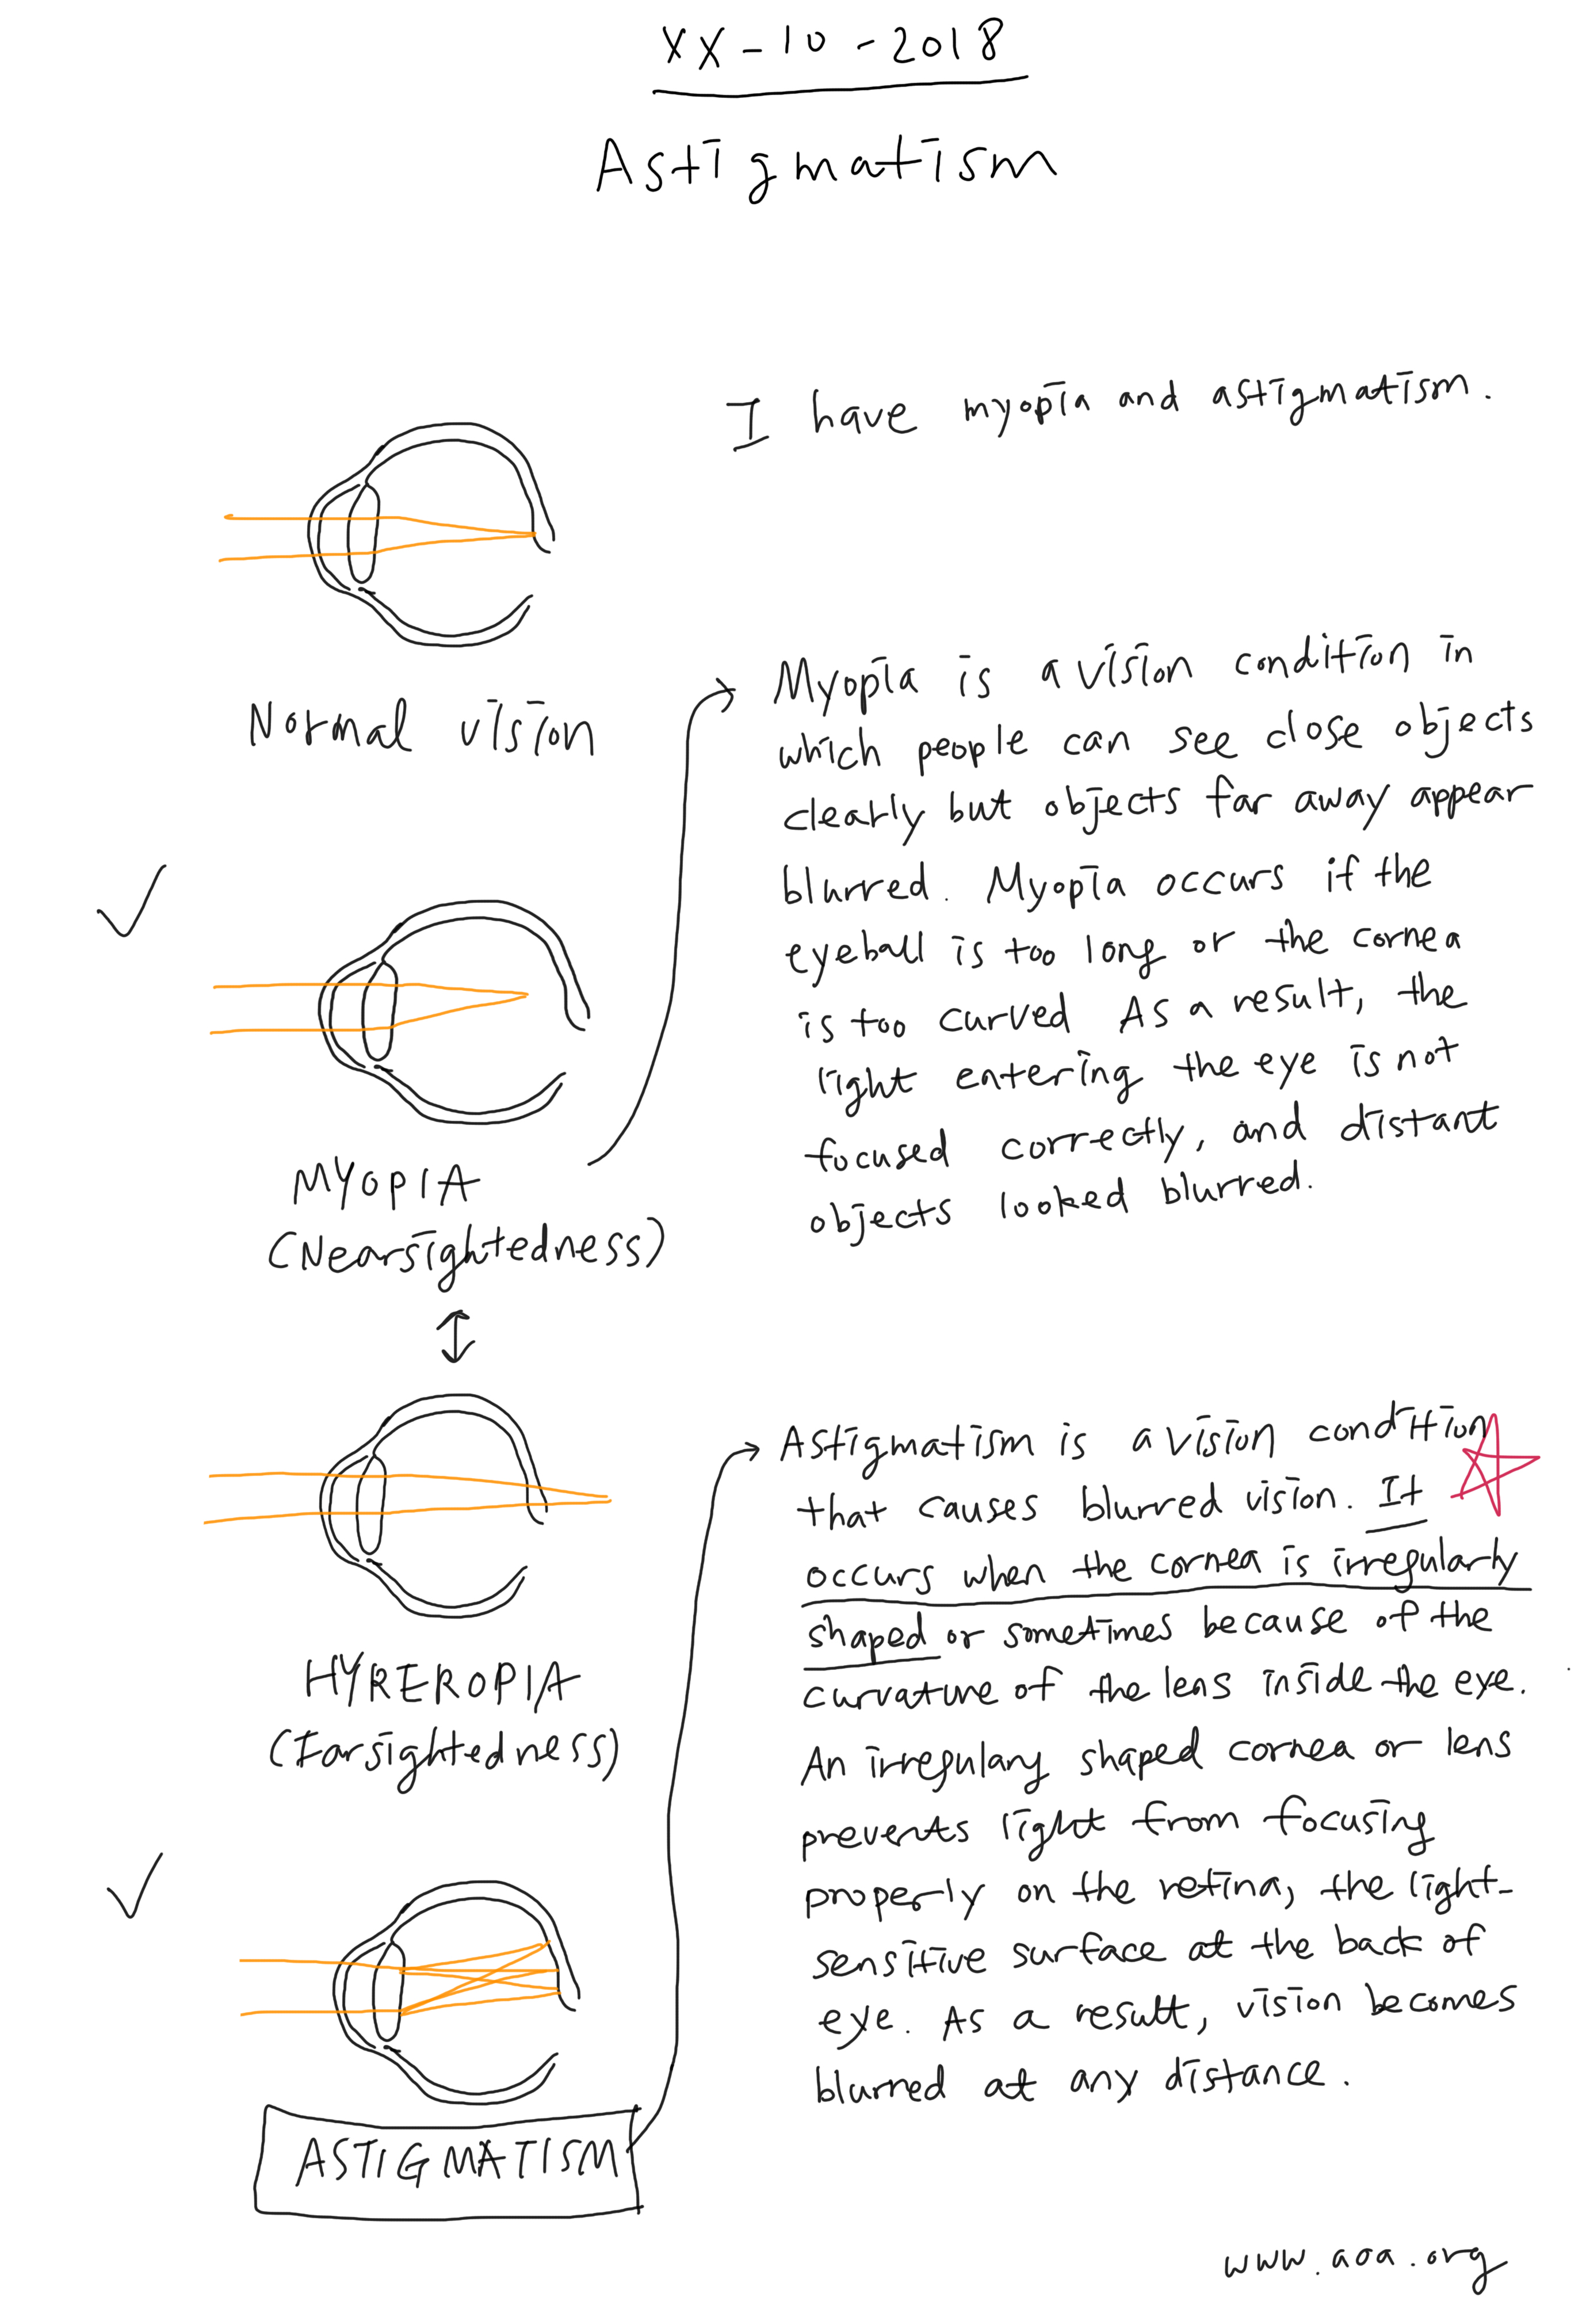 XX-10-2018
Astigmatism
I have myopia and astigmatism.
Normal vision
Myopia is a vision condition in
which people can see close objects
clearly but objects far away appear
blurred. Myopia occurs if the
eyeball is too long or the cornea
is too curved As a result, the
light entering the eye is not
focused correctly, and distant
objects looked blurred.
MYOPIA
(Nearsightedness)
HYREROPIA
(Farsightedness)
Astigmatism is a vision condition
that causes blurred vision. It
occurs when the cornea is irregularly
shaped or sometimes because of the
curvature of the lens inside the eye.
An irregulary shaped cornea or lens
prevents light from focusing
properly on the retina, the light-
sensitive surface at the back of
eye. As a result, vision becomes
blurred at any distance.
ASTIGMATISM
www.aoa.org